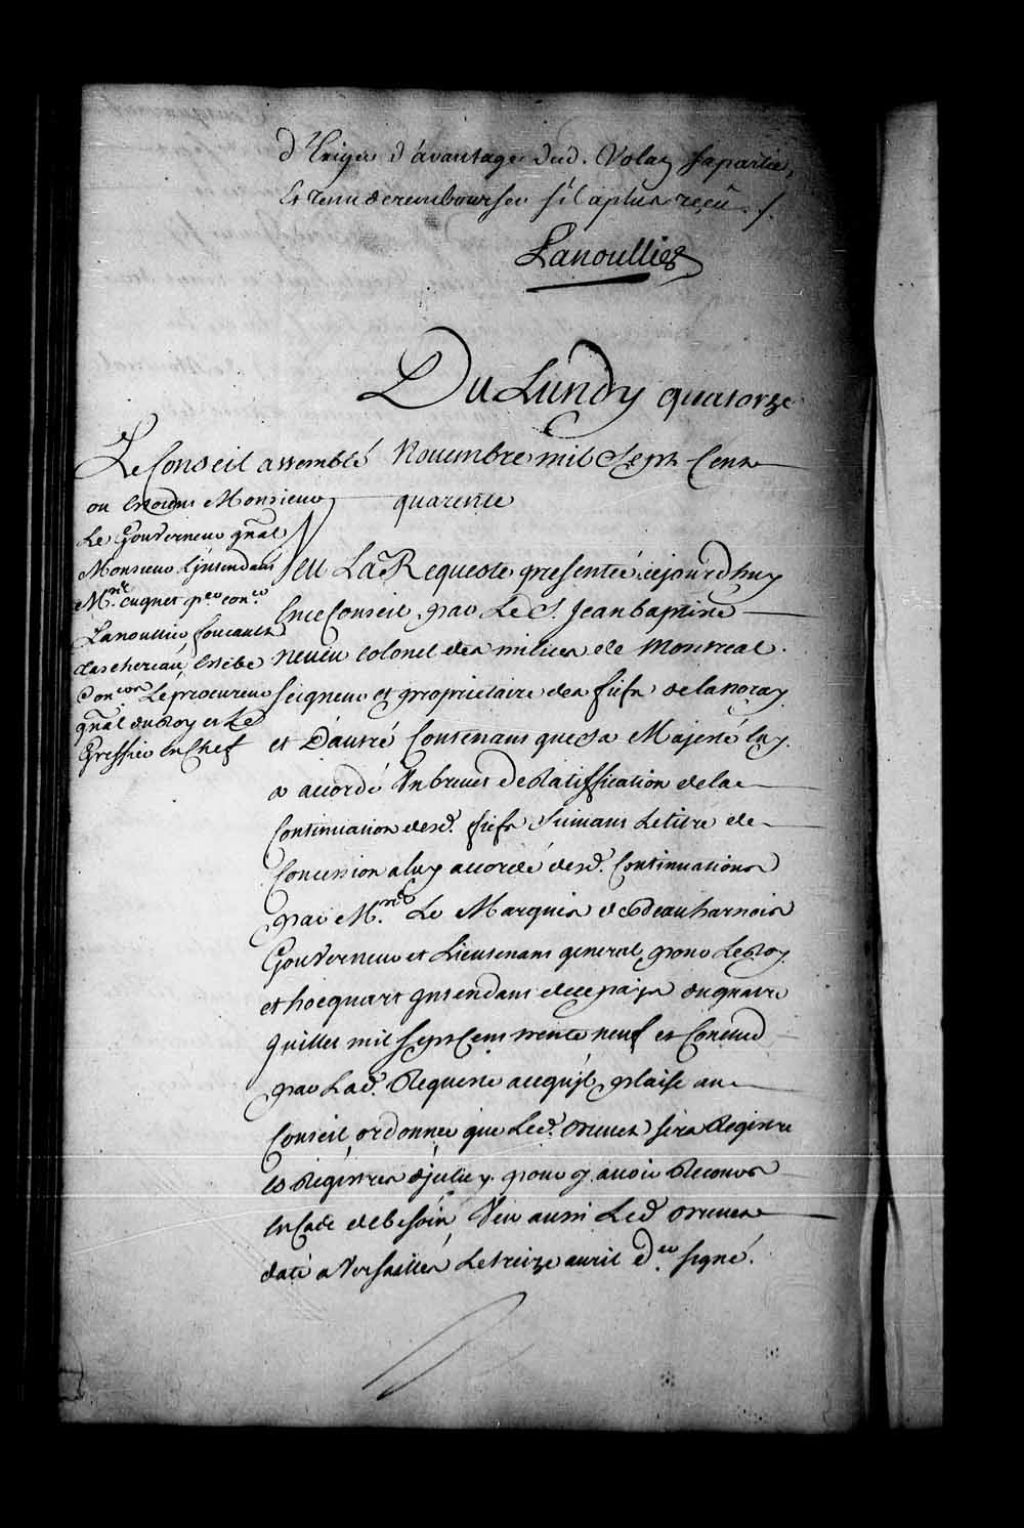 d'Exiger d'avantage dud. Volay sa partie,
Et tenu de rembourser s'il a plus reçû ./.
Lanoullier
Du Lundy quatorze
Novembre mil Sept Cent
quarente
Le Conseil assemblé
ou Estoient Monsieur
Le Gouverneur gñal
Monsieur L'jntendant
Mre. cugnet per. coner.
Lanoullier foucault
Taschereau, Estebe
Coners Le procureur
gñal du Roy et Le
Greffier En Chef
Veu La Requeste presentée cejourd'huy
En ce Conseil, par Le S. Jean baptiste
neveu colonel des milices de Montreal.
seigneur et proprietaire des fiefs de lanoray
et Dautré Contenant que Sa Majesté luy
a accordé Un brevet de Ratiffication de la
Continuation desd. fiefs Suivant Le titre de
Concession a luy accordé desd. Continuations
par Mrs. Le Marquis de Beauharnois
Gouverneur et Lieutenant general, pour Le Roy
et hocquart jntendant de ce païs du quatre
Juillet mil Sept Cent trente neuf et Conclud
par Lad. Requeste a ce qu'jl plaise au
Conseil ordonner que Led. brevet sera Registré
Es Régistres d'jceluy pour y avoir Recours
En Cas de besoin, Veu aussi Led brevet
daté a Versailles Le treize avril der. signé.